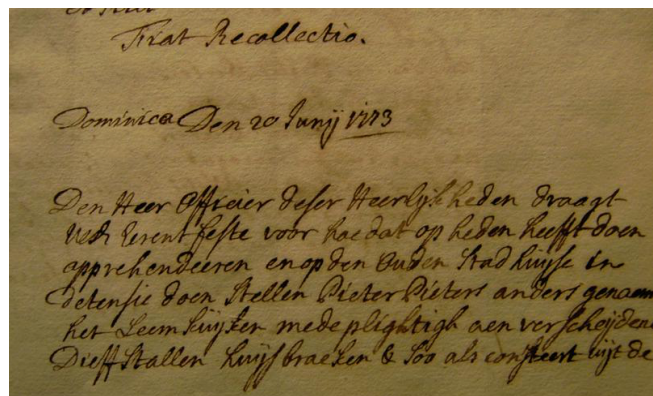 Fiat Recollectio.
Dominica Den 20 Junij 1773
Den Heer Officier deser Heerlijkheden draagt
UEd Eerentfeste voor hoe dat op heden heefft doen
apprehendeeren en op den Ouden Stadhuijse in
detensie doen Stellen Pieter Pieters anders genaem
het Leemkuijken medeplightigh aen verscheijden
Dieffstallen huijsbraeken & Soo als consteert uijt de